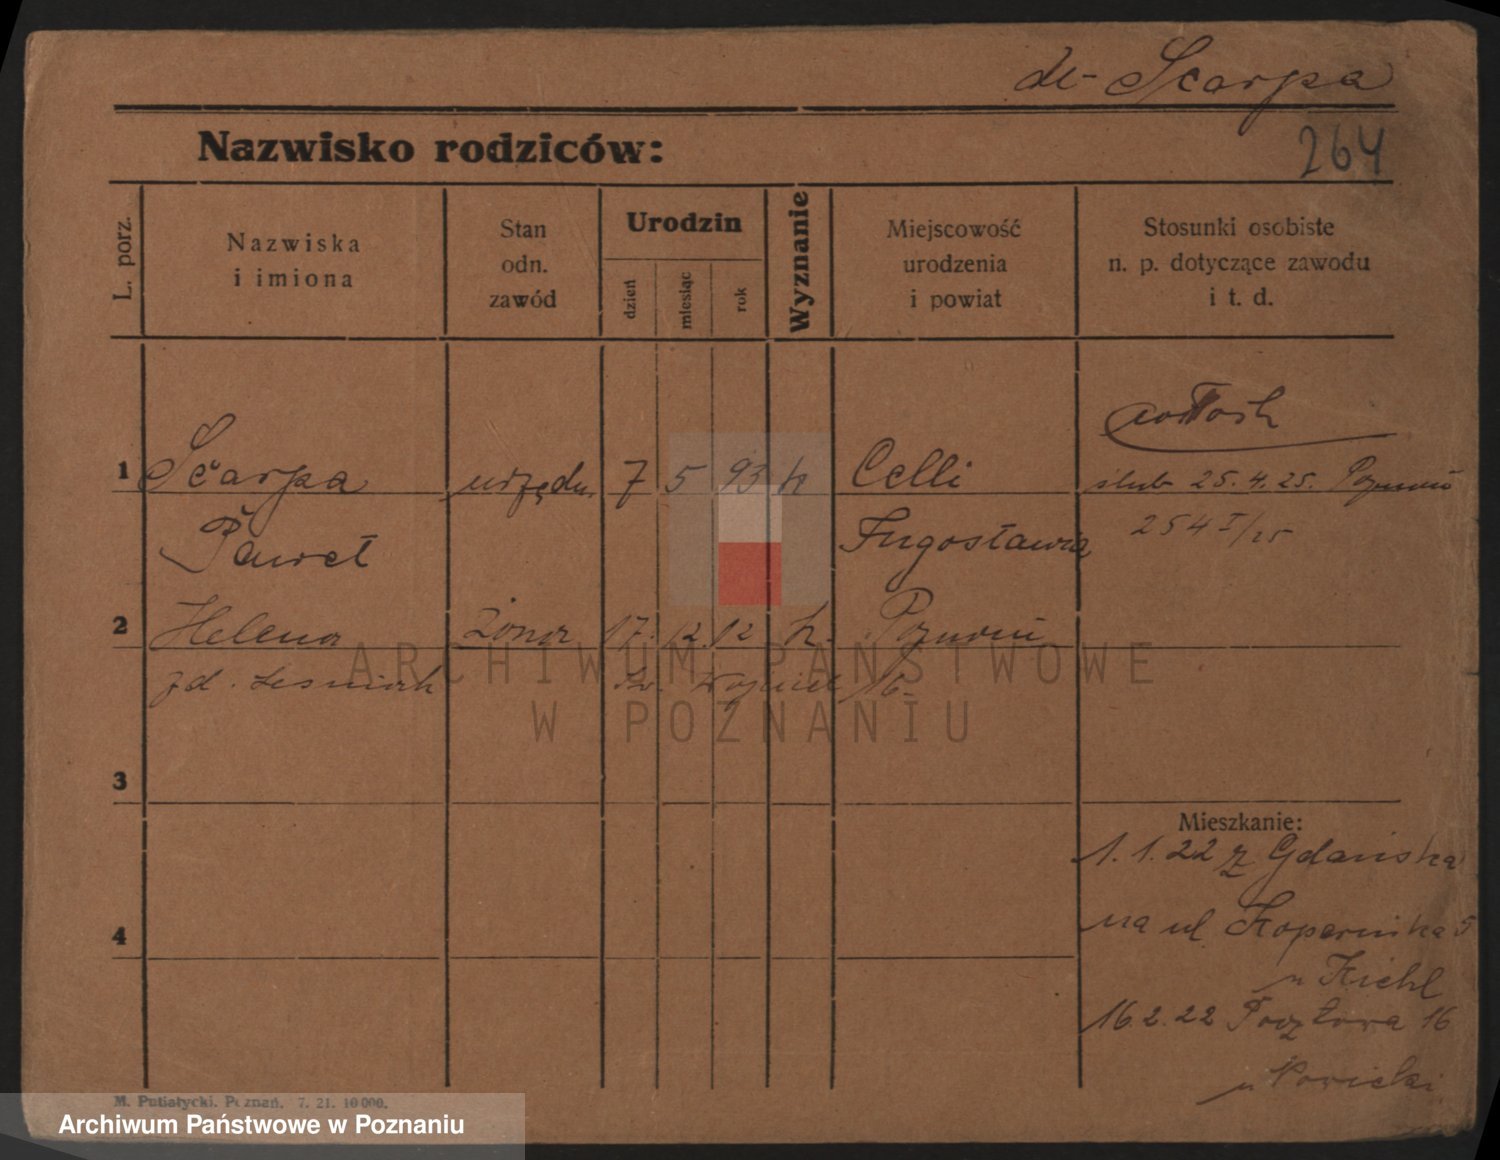 de-Scarpa
Nazwisko rodziców:
264
L. porz.
Nazwiska
i imiona
Stan
odn.
zawód
Urodzin
dzień
miesiąc
rok
Wyznanie
Miejscowość
urodzenia
i powiat
Stosunki osobiste
n. p. dotyczące zawodu
i t. d.
1 Scarpa urzędn. 7 5 93 k Celli ślub 25.4.25. Poznań
Paweł Jugosławia 254 I/25
2 Helena żona 17. 12. 12 k. Poznań
zd. Leśniak Św. Wojciech 16.
3
Mieszkanie:
1.1.22 z Gdańska
4
na ul Kopernika 5
u Kiehl
16.2.22 Pocztowa 16
u Nowicki
M. Putiatycki. Poznań. 7. 21. 10 000.
ARCHIWUM PAŃSTWOWE
W POZNANIU
Archiwum Państwowe w Poznaniu